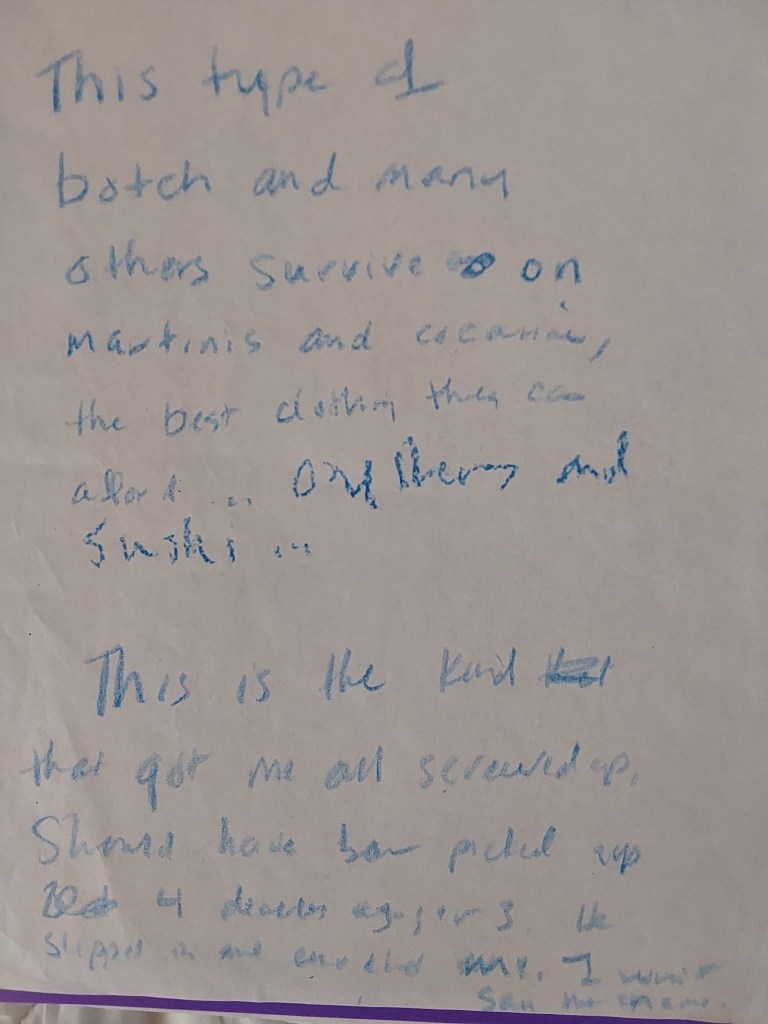 This type of
botch and many
others survive on
martinis and cocaine,
the best clothing they can
afford ... and
sushi ...
This is the kind
that got me all screwed up.
Should have been picked up
4 decades ago or 3. He
slipped in and me. I won't
say the name.